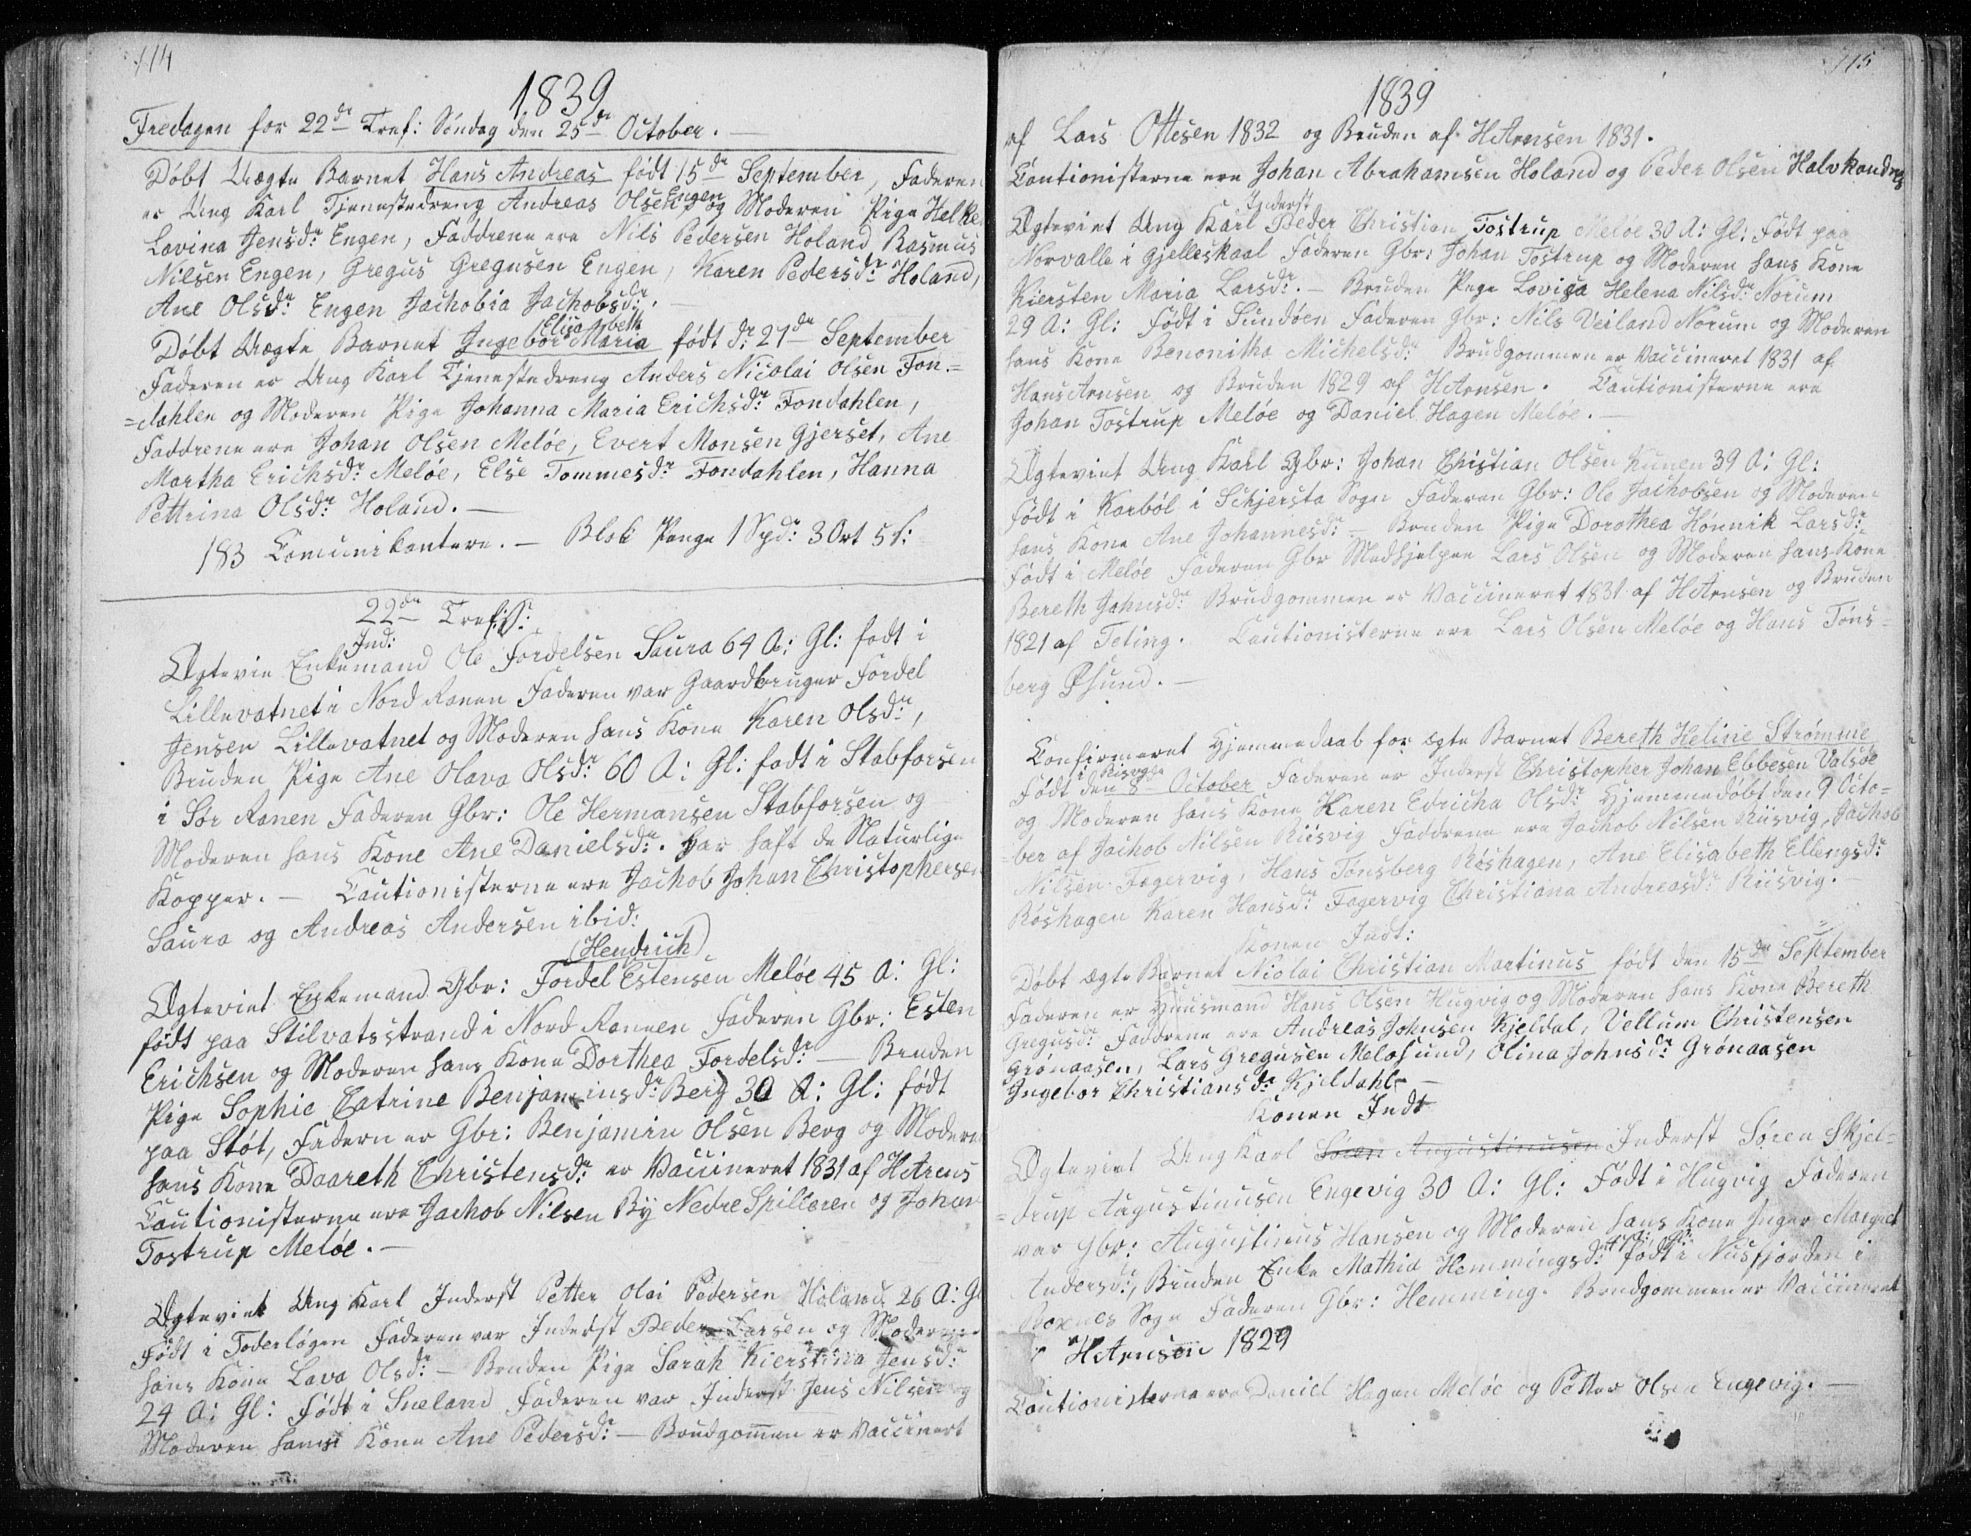 114
1839
Fredagen for 22de Tref: Søndag den 25de October. —
Døbt Uægte Barnet Hans Andreas født 15de September, Faderen
er Ung Karl Tjenestedreng Andreas Olsen Engen og Moderen Pige Helke
Lovina Jensdr Engen, Faddrene ere Nils Pedersen Holand, Rasmus
Nilsen Engen, Gregus Gregusen Engen, Karen Pedersdr Holand,
Ane Olsdr Engen Jachobia Jachobsdr. —
Elisabeth
Døbt Uægte Barnet Ingebor Maria født d: 21de September
Faderen er Ung Karl Tjenestedreng Anders Nicolai Olsen Fon-
=dahlen og Moderen Pige Johanna Maria Erichsdr Fondahlen,
Faddrene ere Johan Olsen Meløe, Evert Monsen Gjerset, Ane
Martha Erichsdr Meløe, Else Tommesdr Fondahlen, Hanna
Pettrina Olsdr Holand. —
183 Comunikantere. — Blok Penge 1 Spd: 3 Ort 5 s:
22de Tref: S:
Ind:
Ægtevie Enkemand Ole Fordelsen Saura 64 A: Gl: født i
Lillevatnet i Nord Ranen Faderen var Gaardbruger Fordel
Jensen Lillevatnet og Moderen hans Kone Karen Olsdr,
Bruden Pige Ane Olava Olsdr 60 A: Gl: født i Stabforsen
i Sør Ranen Faderen Gbr: Ole Hermansen Stabforsen og
Moderen hans Kone Ane Danielsdr. Har haft de Naturlige
Kopper. — Cautionisterne ere Jachob Johan Christophersen
Saura og Andreas Andersen ibid:
(Hendrich)
Ægteviet Enkemand Gbr: Fordel Estensen Meløe 45 A: Gl:
født paa Stilvatsstrand i Nord Ranen Faderen Gbr: Esten
Erichsen og Moderen hans Kone Dorthea Fordelsdr — Bruden
Pige Sophie Catrine Benjaminsdr Berg 30 A: Gl: født
paa Støt, Fadern er Gbr: Benjamin Olsen Berg og Moderen
hans Kone Daareth Christensdr er Vaccineret 1831 af H Arens
Cautionisterne ere Jachob Nilsen By Nedre Spilderen og Johan
Tostrup Meløe. —
Ægteviet Ung Karl Inderst Petter Olai Pedersen Holand 26 A: Gl
Født i Toderløgen Faderen var Inderst Peder Larsen og Moderen
hans Kone Lava Olsdr — Bruden Pige Sarah Kierstina Jensdr
24 A: Gl: Født i Sneland Faderen var Inderst Jens Nilsen og
Moderen hans Kone Ane Pedersdr — Brudgommen er Vaccinert
115
1839
af Lars Ottesen 1832 og Bruden af H Arnsen 1831.
Cautionisterne ere Johan Abrahamsen Holand og Peder Olsen Halvkandnes
Inderst
Ægteviet Ung Karl Peder Christian Tostrup Meløe 30 A: Gl: Født paa
Norvalle i Gjelleskaal Faderen Gbr: Johan Tostrup og Moderen hans Kone
Kiersten Maria Larsdr. — Bruden Pige Lovisa Helena Nilsdr Norum
29 A: Gl: Født i Sundøen Faderen Gbr: Nils Veiland Norum og Moderen
hans Kone Benonitha Michelsdr Brudgommen er Vaccineret 1831 af
Hans Arnsen og Bruden 1829 af H Arnsen. Cautionisterne ere
Johan Tostrup Meløe og Daniel Hagen Meløe. —
Ægteviet Ung Karl Gbr: Johan Christian Olsen Kunen 39 A: Gl:
Født i Karbøl i Schjersta Sogn Faderen Gbr: Ole Jachobsen og Moderen
hans Kone Ane Johannesdr — Bruden Pige Dorothea Hønnik Larsdr
Født i Meløe Faderen Gbr Medhjelper Lars Olsen og Moderen hans Kone
Bereth Jahnsdr Brudgommen er Vaccineret 1831 af H Arnsen og Bruden
1821 af Teting. Cautionisterne ere Lars Olsen Meløe og Hans Tøns=
berg Øsund. —
Confirmeret Hjemmedaab for ægte Barnet Bereth Heline Strømme
i Risvig
Født den 8de October Faderen er Inderst Christopher Johan Ebbesen Valsøe
og Moderen hans Kone Karen Edricha Olsdr Hjemmedøbt den 9 Octo=
=ber af Jachob Nilsen Riisvig Faddrene ere Jachob Nilsen Riisvig, Jachob
Nilsen Fagervig, Hans Tønsberg Røshagen, Ane Elisabeth Ellengsdr
Røshagen Karen Hansdr Fagervig Christiana Andreasdr Riisvig. —
Konen Indt:
Døbt ægte Barnet Nicolai Christian Martinus født den 15de September
Faderen er Huusmand Hans Olsen Hugvig og Moderen hans Kone Bereth
Gregusdr Faddrene ere Andreas Johnsen Kjeldal, Vellum Christensen
Grønaasen, Lars Gregusen Meløsund, Olina Johnsdr Grønaasen
Ingebor Christiansdr Kjeldahl —
Konen Indt
Ægteviet Ung Karl Søren Augustinusen Inderst Søren Skjel=
=drup Augustinusen Engevig 30 A: Gl: Født i Hugvig Faderen
var Gbr: Augustinus Hansen og Moderen hans Kone Inger Margret
Andersdr, Bruden Enke Mathia Hemmingsdr født i Nusfjorden i
Boxnes Sogn Faderen Gbr: Hemming. Brudgommen er Vaccineret
H Arnsen 1829
Cautionisterne ere Daniel Hagen Meløe og Petter Olsen Engevig. —